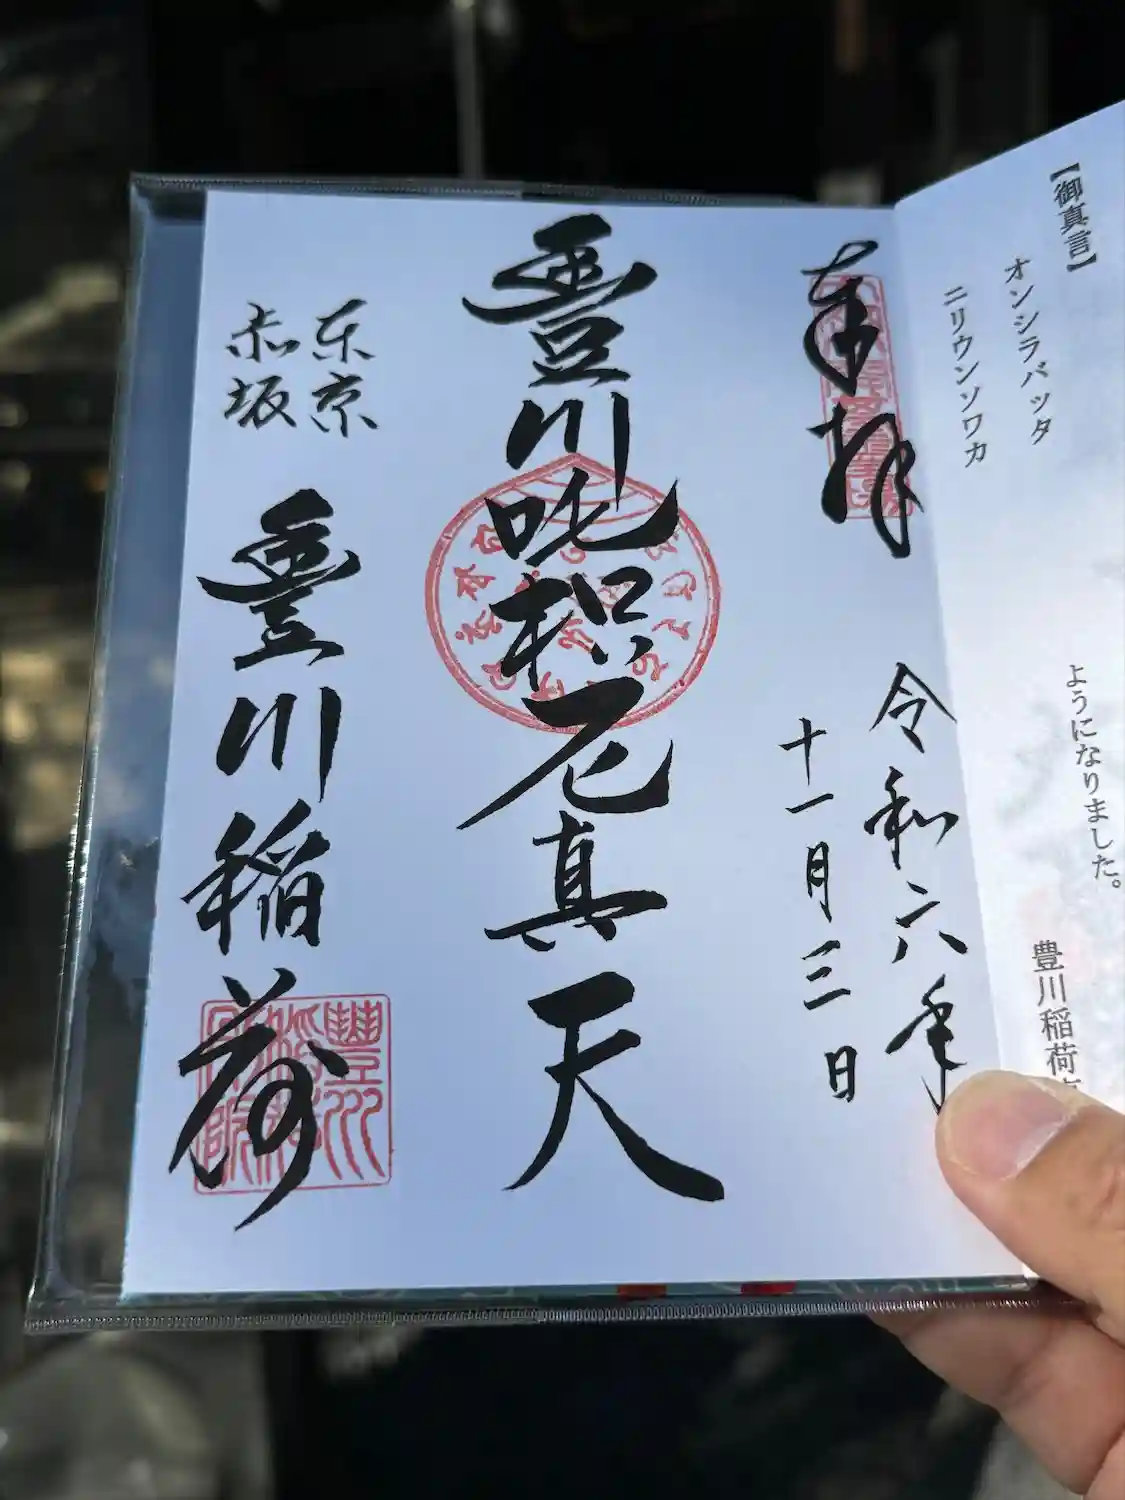 【御真言】
オンシラバッタ
ニリウンソワカ
ようになりました。
豊川稲荷
奉拝
令和六年
十一月三日
豐川吒枳尼真天
東京
赤坂
豐川稲荷